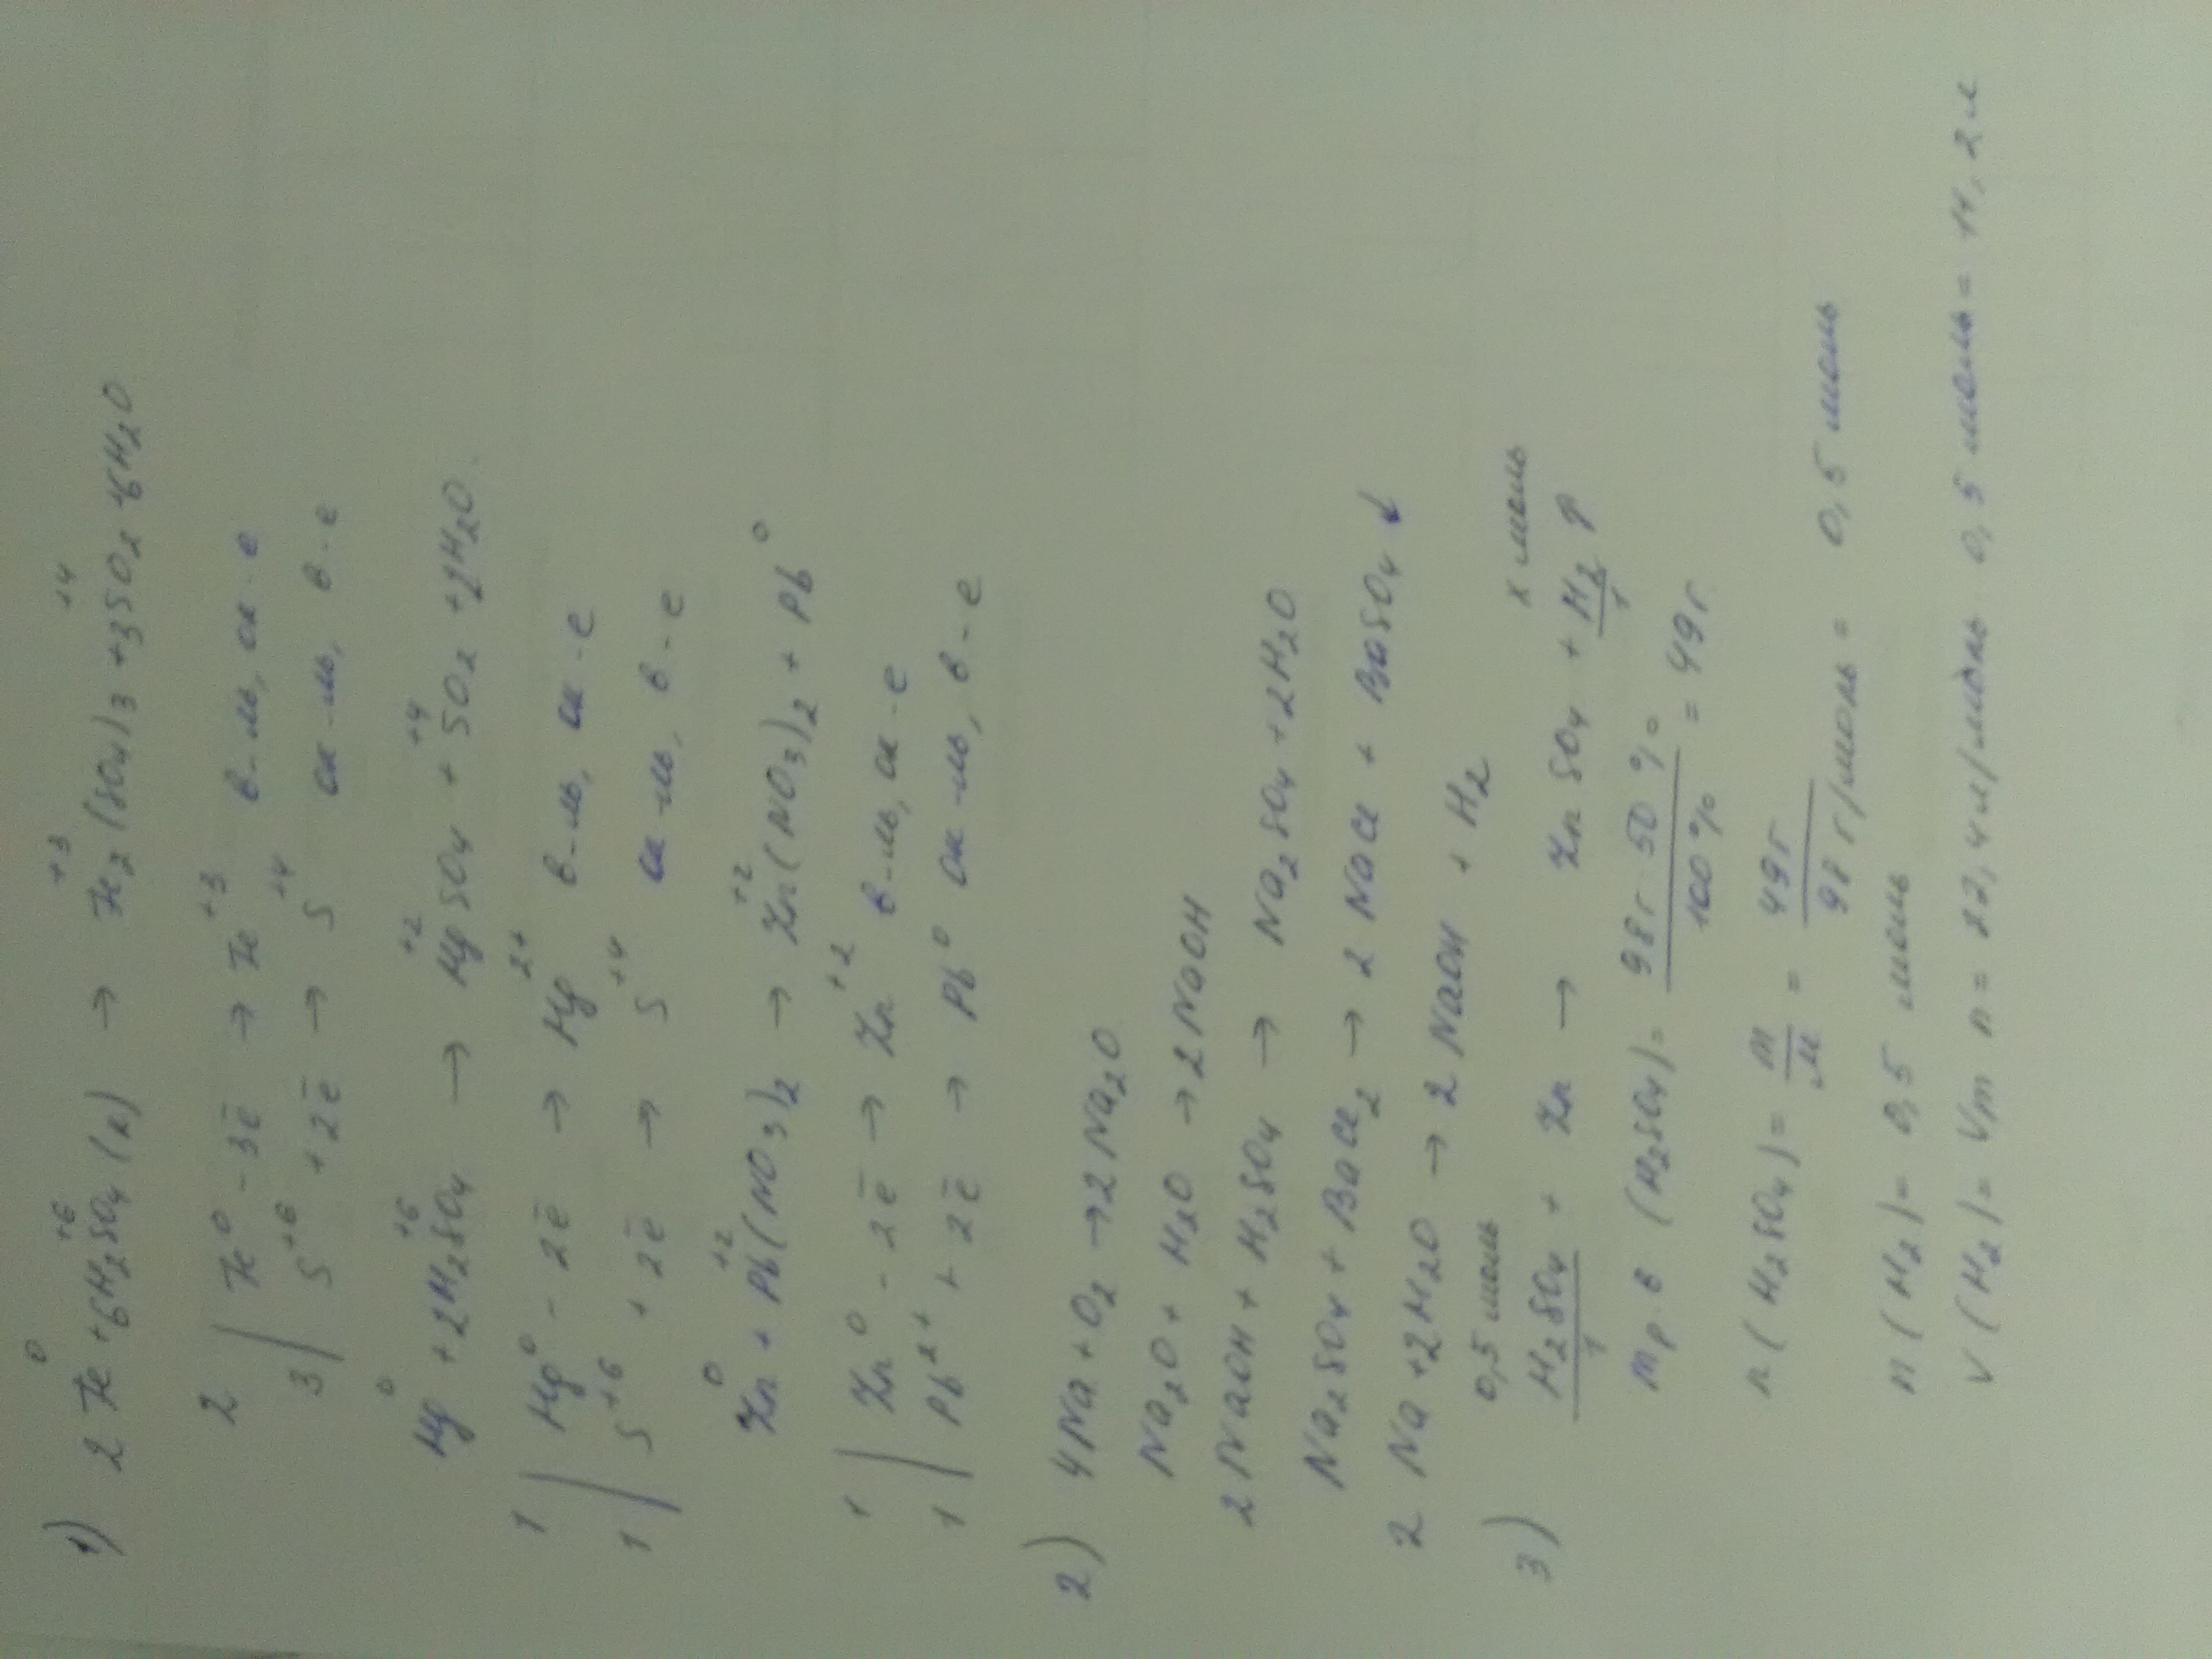 1) 2Fe⁰ + 6H₂S⁺⁶O₄ (к) → Fe₂⁺³(SO₄)₃ + 3S⁺⁴O₂ + 6H₂O
2 | Fe⁰ - 3ē → Fe⁺³ в-ль, ок-е
3 | S⁺⁶ + 2ē → S⁺⁴ ок-ль, в-е
Hg⁰ + 2H₂S⁺⁶O₄ → Hg⁺²SO₄ + S⁺⁴O₂ + 2H₂O
1 | Hg⁰ - 2ē → Hg²⁺ в-ль, ок-е
1 | S⁺⁶ + 2ē → S⁺⁴ ок-ль, в-е
Zn⁰ + Pb⁺²(NO₃)₂ → Zn⁺²(NO₃)₂ + Pb⁰
1 | Zn⁰ - 2ē → Zn⁺² в-ль, ок-е
1 | Pb²⁺ + 2ē → Pb⁰ ок-ль, в-е
2) 4Na + O₂ → 2Na₂O
Na₂O + H₂O → 2NaOH
2NaOH + H₂SO₄ → Na₂SO₄ + 2H₂O
Na₂SO₄ + BaCl₂ → 2NaCl + BaSO₄↓
2Na + 2H₂O → 2NaOH + H₂
0,5 моль x моль
3) H₂SO₄ + Zn → ZnSO₄ + H₂↑
1 1
m р.в (H₂SO₄) = 98г · 50% / 100% = 49г
n(H₂SO₄) = m/M = 49г / 98г/моль = 0,5 моль
n(H₂) = 0,5 моль
V(H₂) = Vm · n = 22,4 л/моль · 0,5 моль = 11,2 л